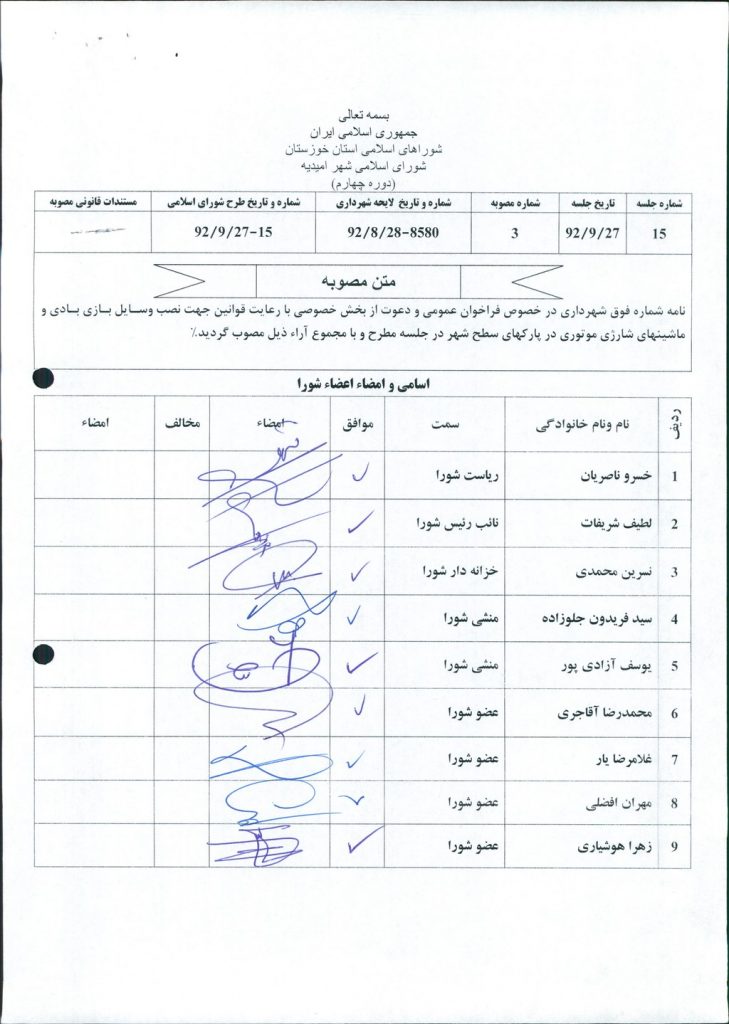 بسمه تعالی
جمهوری اسلامی ایران
شوراهای اسلامی استان خوزستان
شورای اسلامی شهر امیدیه
(دوره چهارم)
شماره جلسه تاریخ جلسه شماره مصوبه شماره و تاریخ لایحه شهرداری شماره و تاریخ طرح شورای اسلامی مستندات قانونی مصوبه
15 92/9/27 3 92/8/28-8580 92/9/27-15
متن مصوبه
نامه شماره فوق شهرداری در خصوص فراخوان عمومی و دعوت از بخش خصوصی با رعایت قوانین جهت نصب وسایل بازی بادی و
ماشینهای شارژی موتوری در پارکهای سطح شهر در جلسه مطرح و با مجموع آراء ذیل مصوب گردید.٪
اسامی و امضاء اعضاء شورا
ردیف نام ونام خانوادگی سمت موافق امضاء مخالف امضاء
1 خسرو ناصریان ریاست شورا ✓
2 لطیف شریفات نائب رئیس شورا ✓
3 نسرین محمدی خزانه دار شورا ✓
4 سید فریدون جلوزاده منشی شورا ✓
5 یوسف آزادی پور منشی شورا ✓
6 محمدرضا آقاجری عضو شورا ✓
7 غلامرضا یار عضو شورا ✓
8 مهران افضلی عضو شورا ✓
9 زهرا هوشیاری عضو شورا ✓